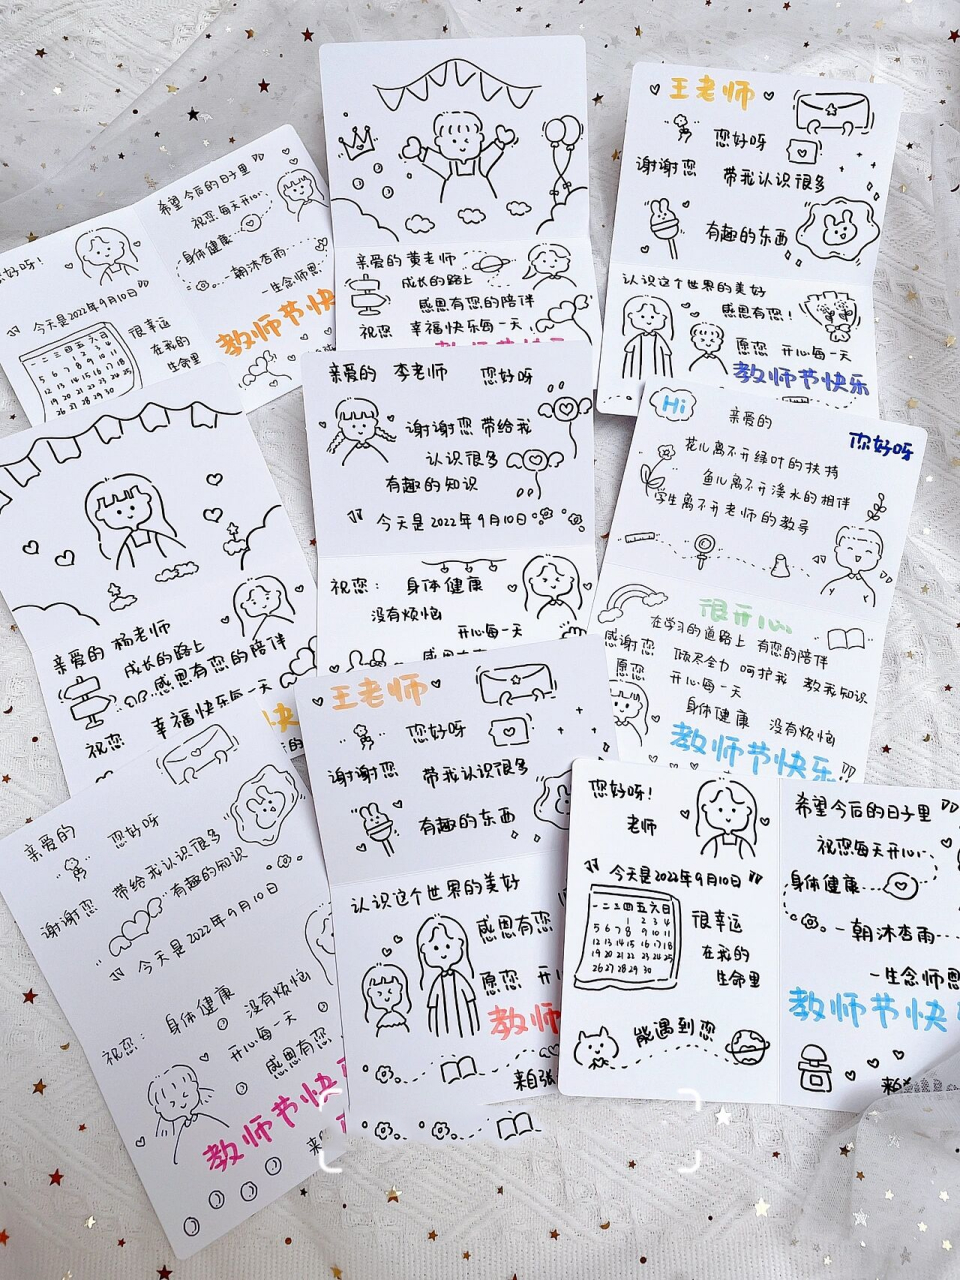 希望今后的日子里
祝您每天开心
身体健康
一朝沐杏雨
一生念师恩
教师节快
好呀!
今天是2022年9月10日
一二三四五六日
1 2 3 4
5 6 7 8 9 10 11
12 13 14 15 16 17 18
19 20 21 22 23 24 25
26 27 28 29 30
很幸运
在我的
生命里
亲爱的 黄老师
成长的路上
感恩有您的陪伴
祝您 幸福快乐每一天
王老师
您好呀
谢谢您 带我认识很多
有趣的东西
认识这个世界的美好
感恩有您!
愿您 开心每一天
教师节快乐
亲爱的 李老师 您好呀
谢谢您带给我
认识很多
有趣的知识
今天是2022年9月10日
祝您: 身体健康
没有烦恼
开心每一天
Hi
亲爱的
您好呀
花儿离不开绿叶的扶持
鱼儿离不开溪水的相伴
学生离不开老师的教导
很开心
在学习的道路上 有您的陪伴
感谢您 倾尽全力 呵护我 教我知识
愿您 开心每一天
身体健康 没有烦恼
教师节快乐
亲爱的 杨老师
成长的路上
感恩有您的陪伴
祝您 幸福快乐每一天
快
亲爱的 您好呀
谢谢您 带给我认识很多
有趣的知识
今天是2022年9月10日
祝您: 身体健康 没有烦恼
开心每一天
感恩有您
教师节快
来
王老师
您好呀
谢谢您 带我认识很多
有趣的东西
认识这个世界的美好
感恩有您
愿您 开
教师
来自张
您好呀!
老师
今天是2022年9月10日
一二三四五六日
1 2 3 4
5 6 7 8 9 10 11
12 13 14 15 16 17 18
19 20 21 22 23 24 25
26 27 28 29 30
很幸运
在我的
生命里
能遇到您
希望今后的日子里
祝您每天开心
身体健康
一朝沐杏雨
一生念师恩
教师节快
来自